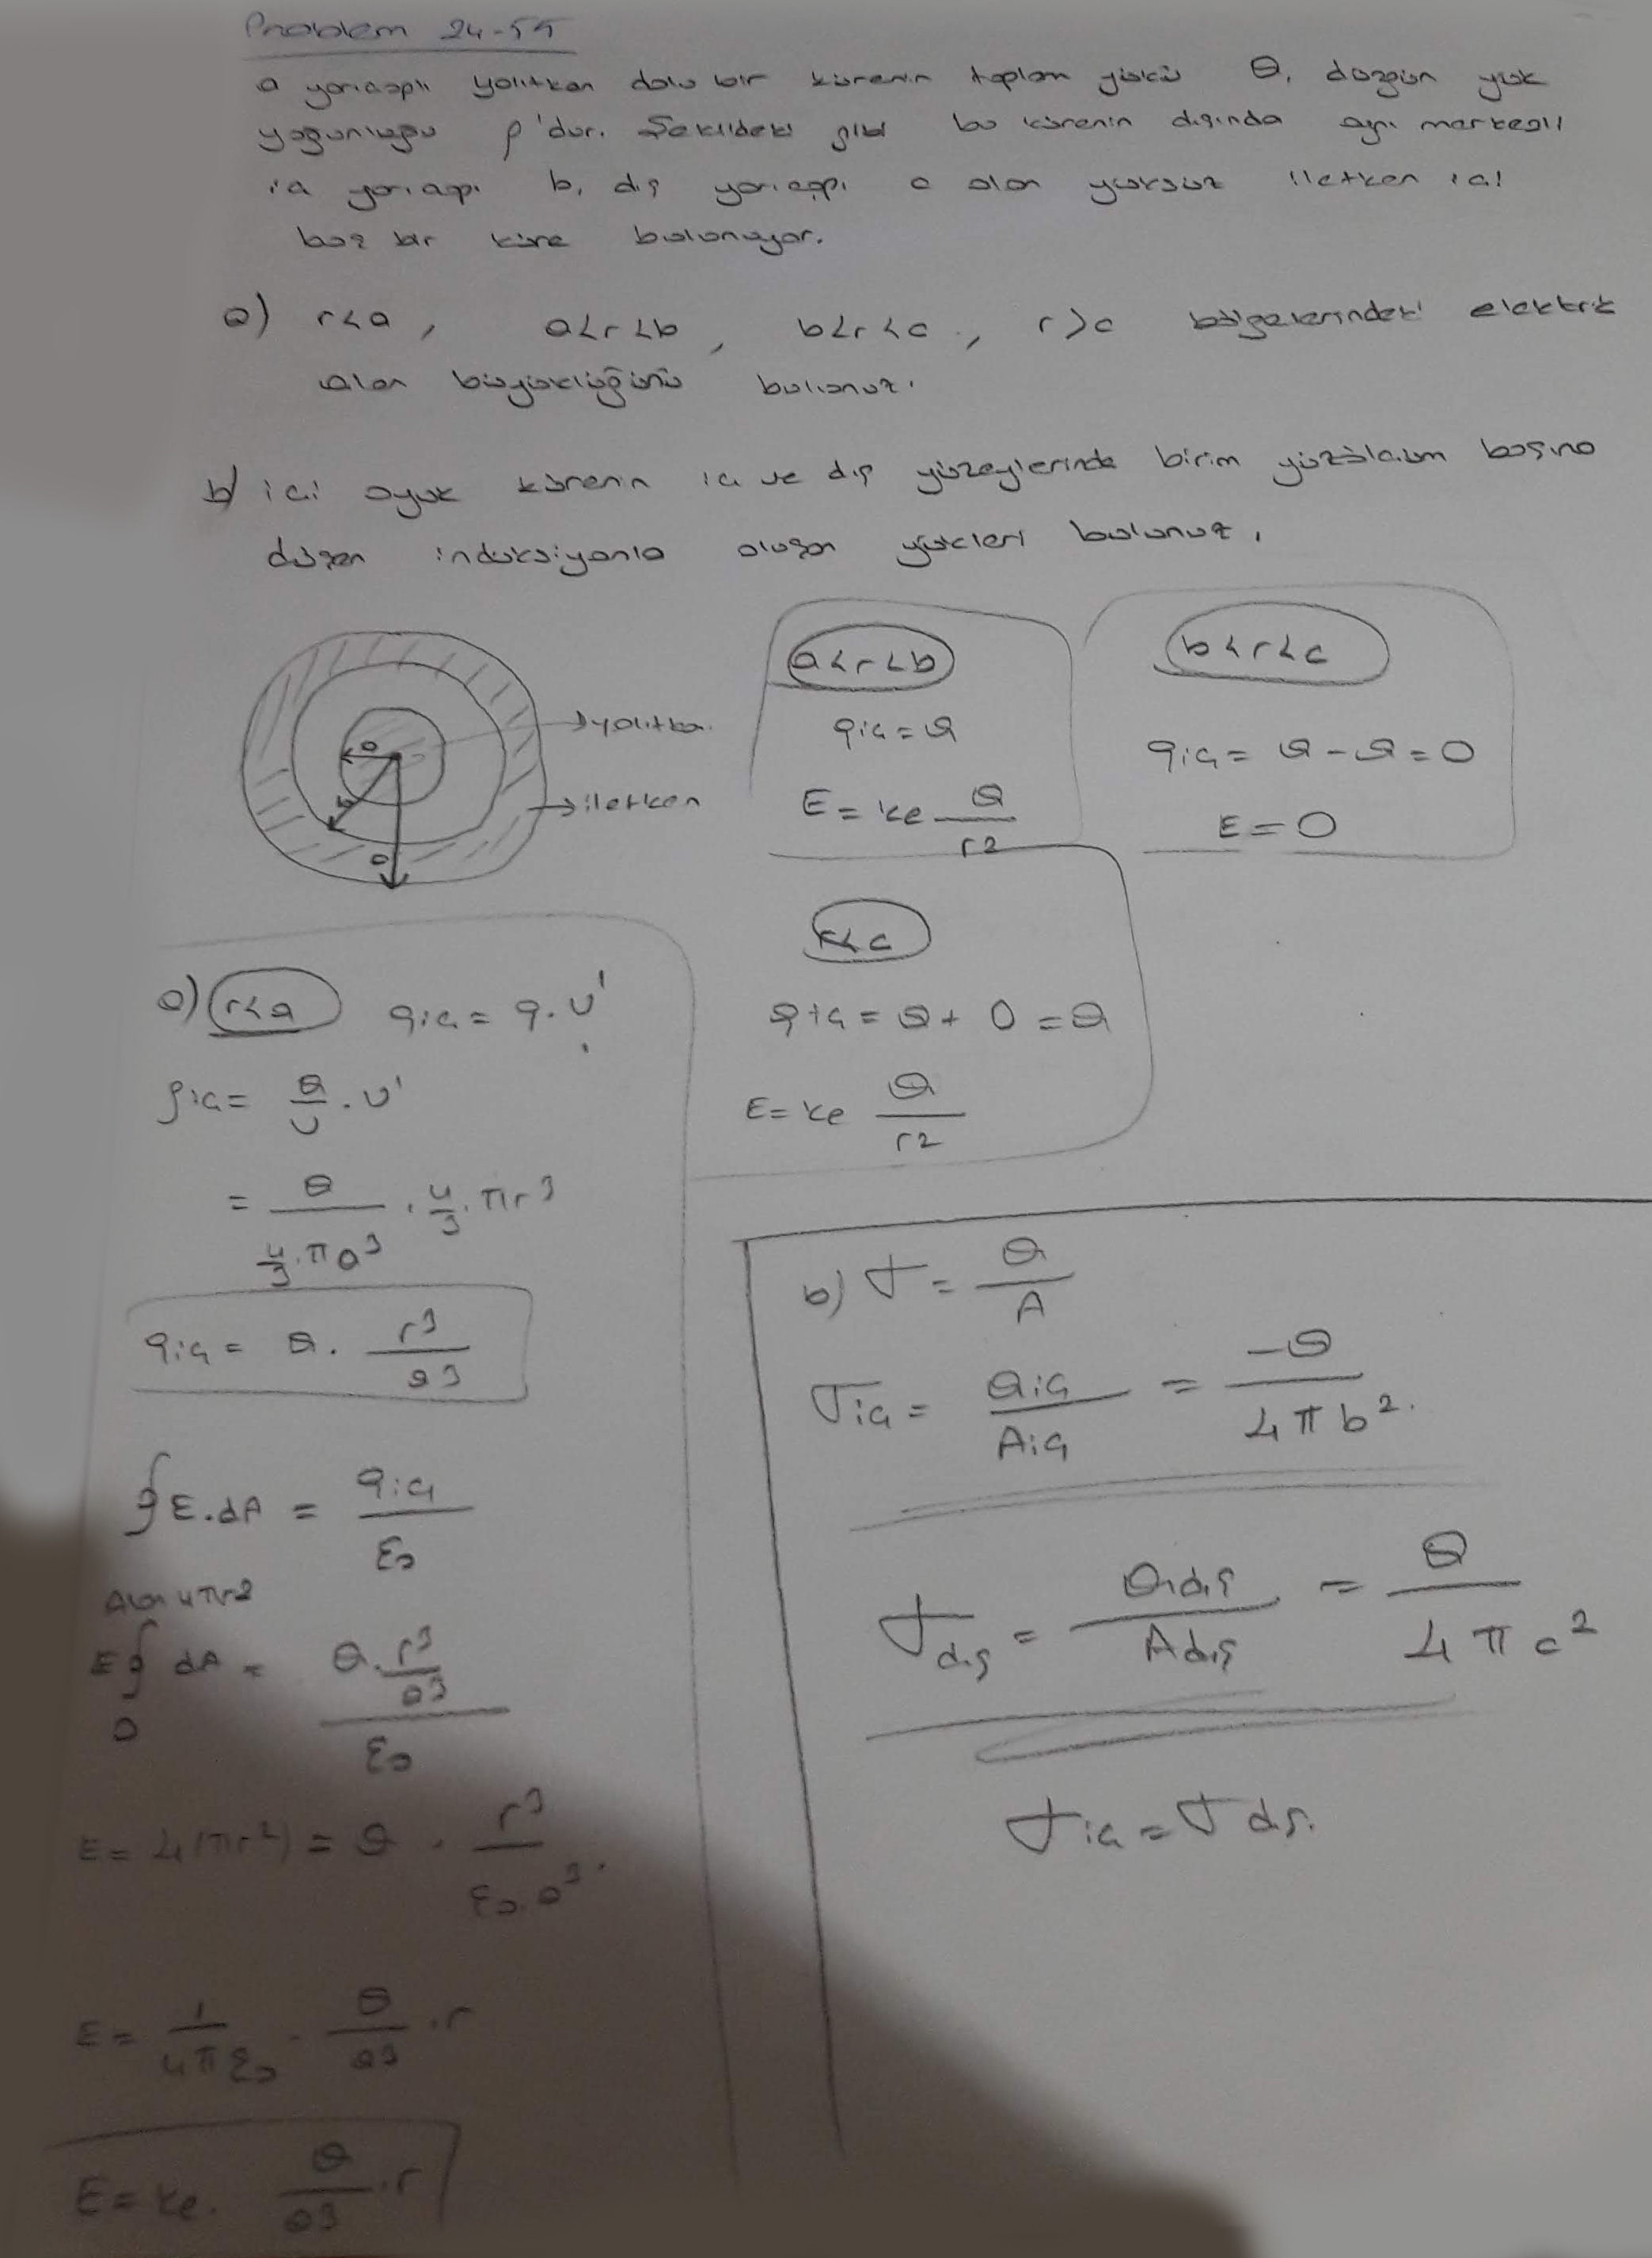 Problem 24-55
a yarıçaplı yalıtkan dolu bir kürenin toplam yükü Q, düzgün yük
yoğunluğu ρ'dur. Şekildeki gibi bu kürenin dışında aynı merkezli
iç yarıçapı b, dış yarıçapı c olan yüksüz iletken içi
boş bir küre bulunuyor.
a) r<a, a<r<b, b<r<c, r>c bölgelerindeki elektrik
alan büyüklüğünü bulunuz.
b) içi oyuk kürenin iç ve dış yüzeylerinde birim yüzölçüm başına
düşen indüksiyonla oluşan yükleri bulunuz.
a
b
c
→yalıtka
→iletken
a<r<b
qiç = Q
E = ke Q/r2
b<r<c
qiç = Q - Q = 0
E = 0
r<c
qiç = Q + 0 = Q
E = ke Q/r2
a) r<a qiç = q.υ'
ρiç = Q/υ . υ'
= Q/(4/3.πa3) . 4/3.πr3
qiç = Q. r3/a3
∮E.dA = qiç/ε0
4πr2
E∮dA = Q.r3/a3 / ε0
E = 4(πr2) = Q . r3/ε0.a3.
E = 1/4πε0 . Q/a3 .r
E = ke. Q/a3 .r
b) σ = Q/A
σiç = Qiç/Aiç = -Q/4πb2.
σdış = Qdış/Adış = Q/4πc2
σiç = σdış.